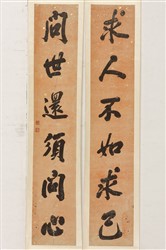 求人不如求己
問世還須問心